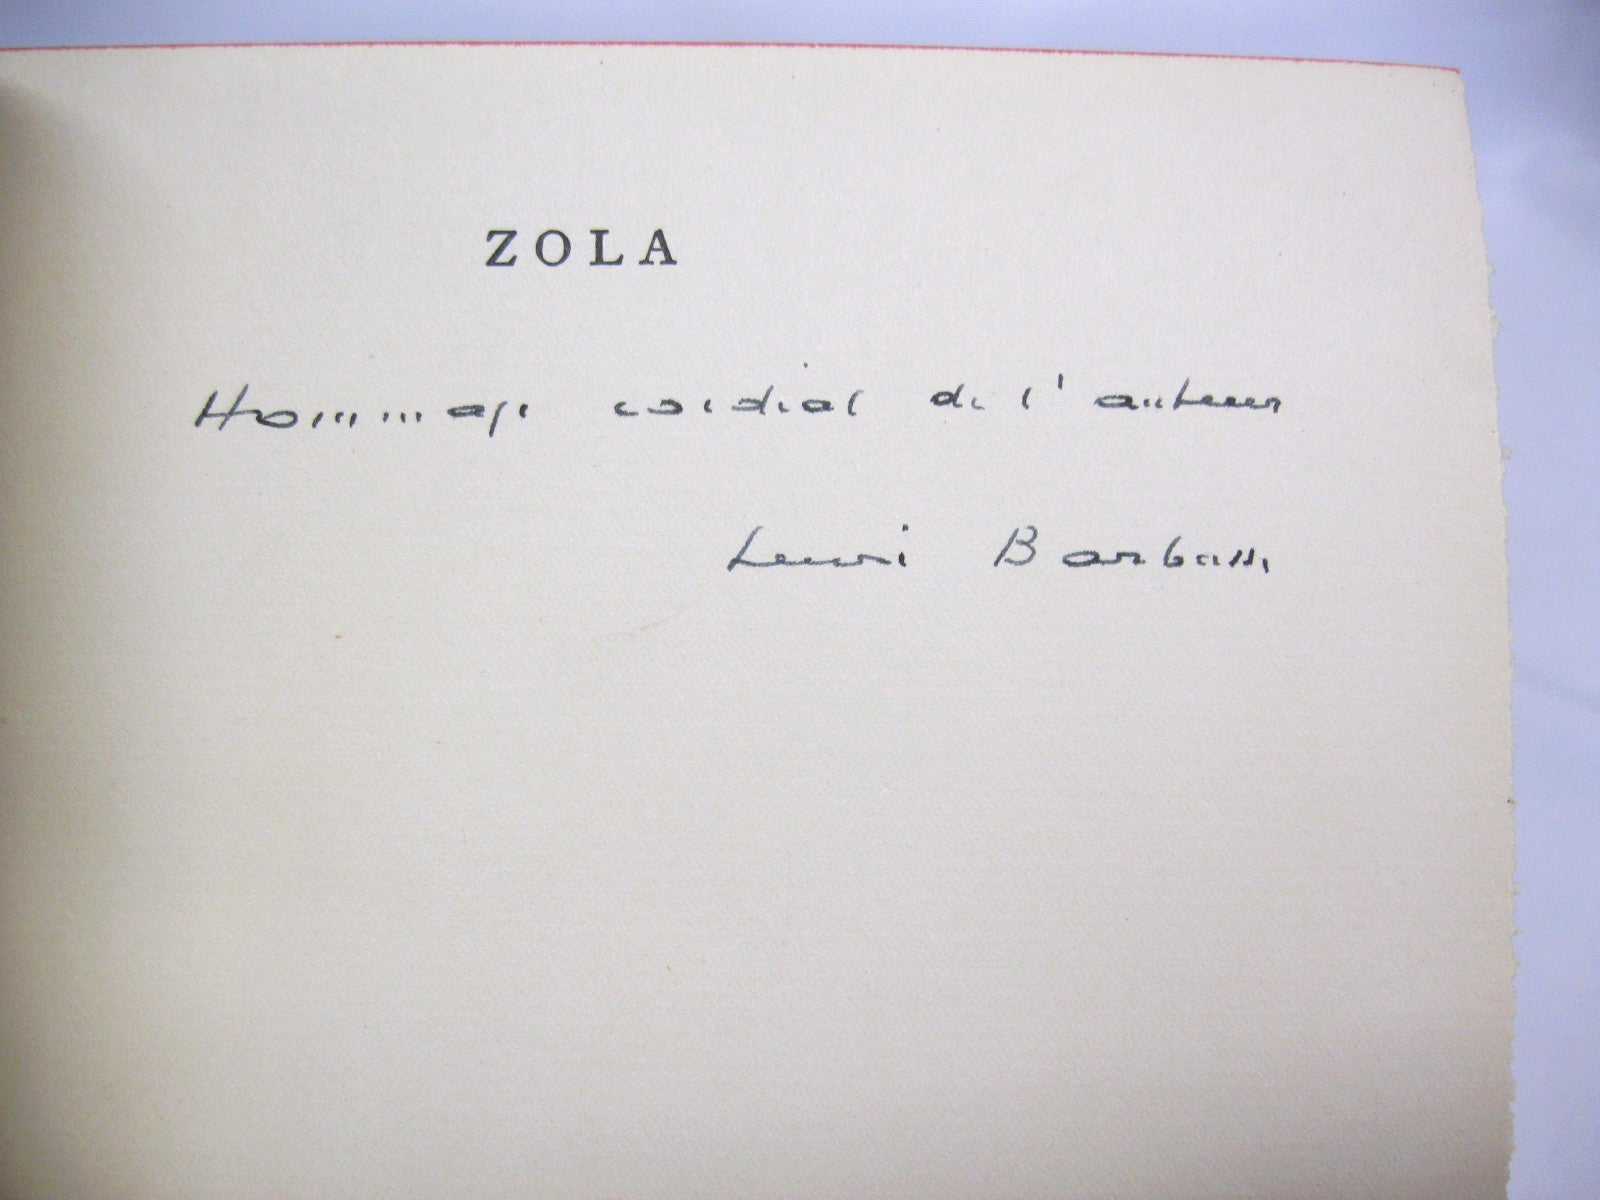 ZOLA
Hommage cordial de l'auteur
Henri Barbusse